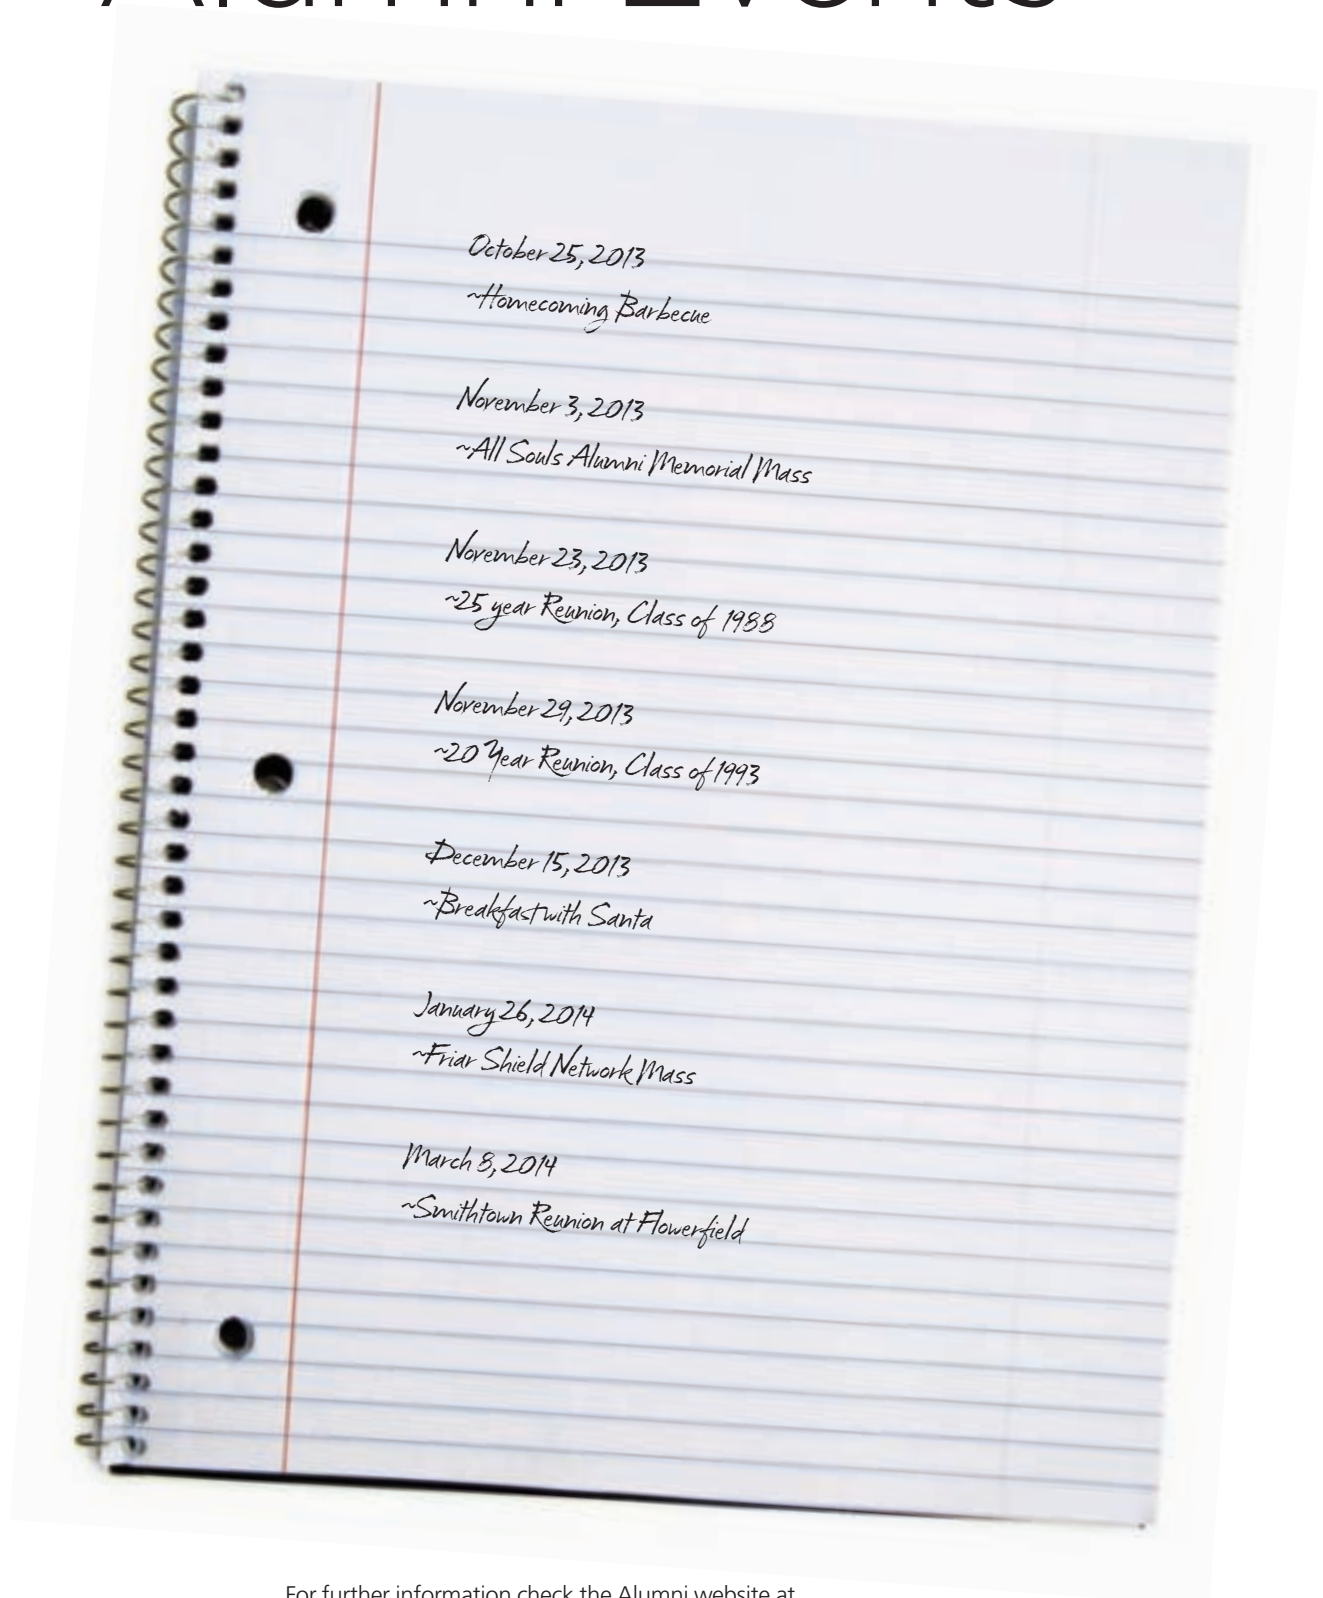 Alumni Events
October 25, 2013
~Homecoming Barbecue
November 3, 2013
~All Souls Alumni Memorial Mass
November 23, 2013
~25 year Reunion, Class of 1988
November 29, 2013
~20 Year Reunion, Class of 1993
December 15, 2013
~Breakfast with Santa
January 26, 2014
~Friar Shield Network Mass
March 8, 2014
~Smithtown Reunion at Flowerfield
For further information check the Alumni website at